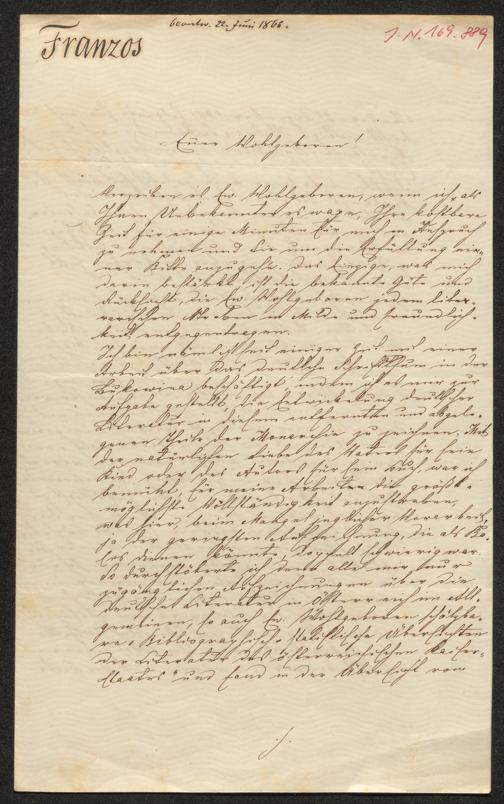 beantw. 22. Juni 1866.
J. N. 169.889
Franzos
Euer Wohlgeboren!
Verzeihen es Ew. Wohlgeboren, wenn ich, als
Ihnen Unbekannter es wage, Ihre kostbare
Zeit für einige Minuten für mich in Anspruch
zu nehmen und Sie um die Erfüllung ei-
ner Bitte anzugehn. Das Einzige, was mich
darin bestärkt, ist die bekannte Güte und
Rücksicht, die Ew. Wohlgeboren jedem liter-
arischen Streben in Milde und Freundlich-
keit entgegentragen.
Ich bin nämlich seit einiger Zeit mit einer
Arbeit über das deutsche Schriftthum in der
Bukowina beschäftigt indem ich es mir zur
Aufgabe gestellt, die Entwickelung deutscher
Literatur in diesem entfernten und abgele-
genen Theile der Monarchie zu zeichnen. Mit
der natürlichen Liebe des Vaters für sein
Kind oder des Autors für sein Buch, war ich
bemüht, für meine Arbeiten die größt-
möglichste Vollständigkeit anzustreben,
was hier, beim Mangel jeglicher Vorarbeit,
ja der geringsten Aufzeichnung, die als
dienen könnte, doppelt schwierig war.
So durchstöberte ich denn alle mir nur
zugänglichen Aufzeichnungen über die
deutsche Literatur in Österreich im All-
gemeinen, so auch Ew. Wohlgeboren schätzba-
re „Bibliographisch-statistische Übersichten
der Literatur des österreichischen Kaiser-
staates" und fand in der Überzahl von
./.